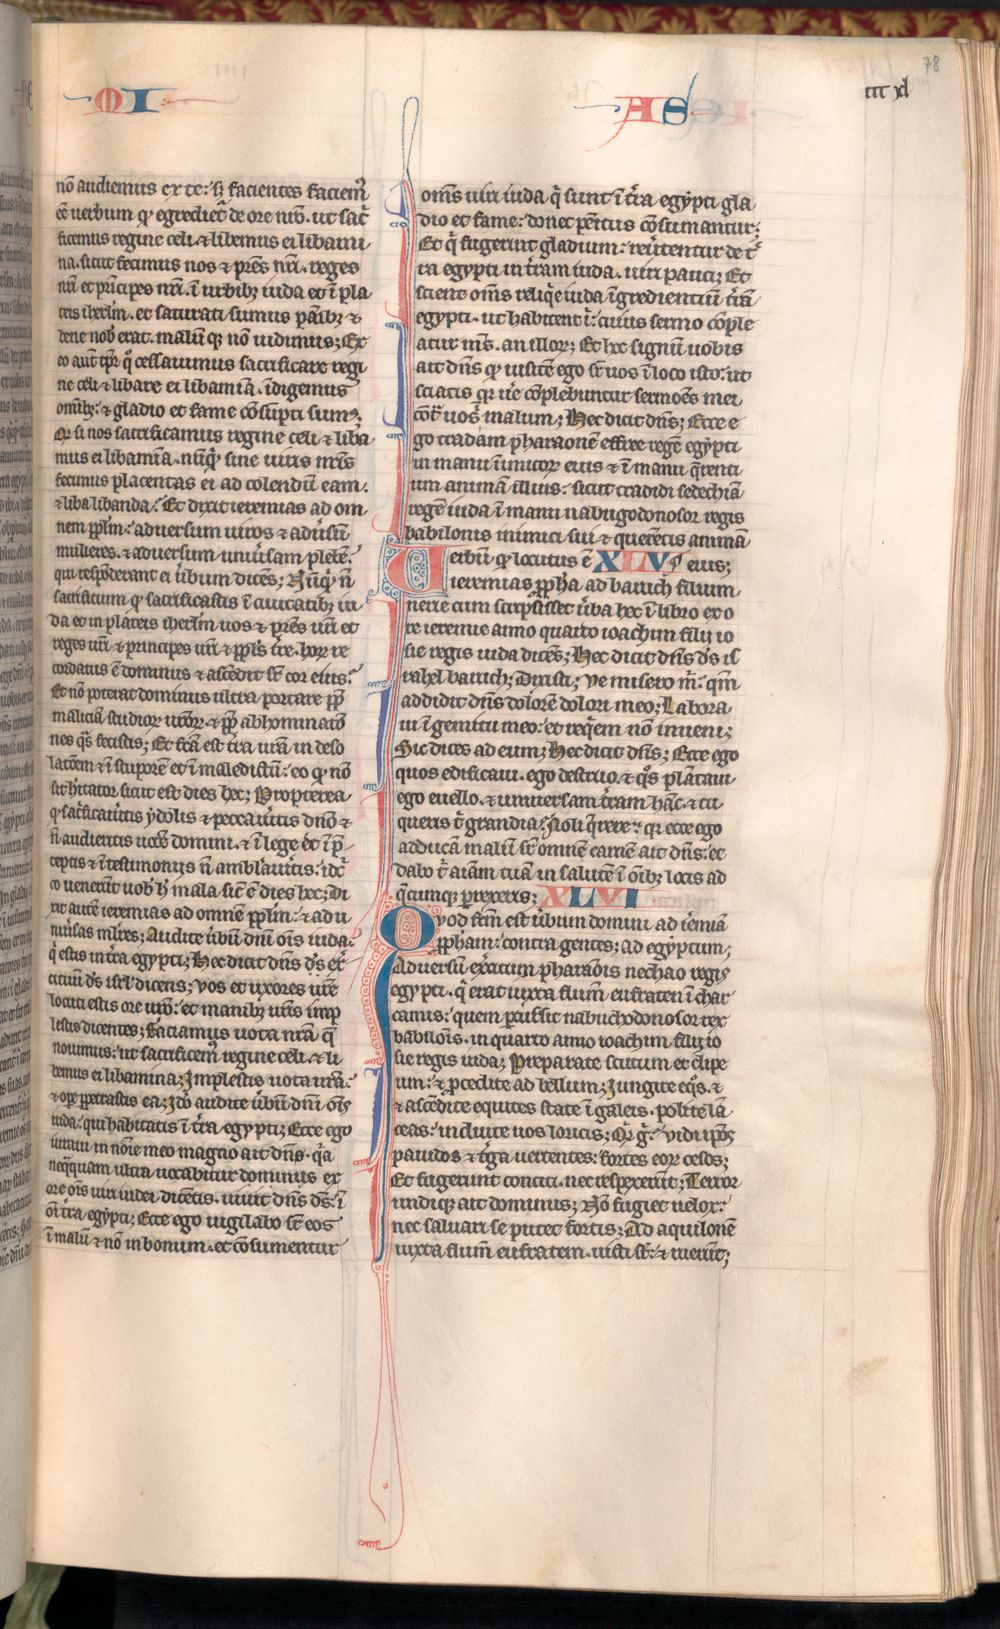 78
MI AS ccc xl
nō audiemus ex te: sꝫ facientes faciemꝰ
oē uerbum qd egrediet᷑ de ore nr̄o. ut sac̄
ficemus regine celi. ⁊ libemus ei libami
na. sicut fecimus nos ⁊ pr̄es nr̄i. reges
nr̄i et pͥncipes nr̄i. ī urbibꝫ iuda et ī pla
teis ihrlm̄. et saturati sumus panibꝫ ⁊
bene nob̄ erat. malūqꝫ nō uidimus; Ex
eo aut̄ tp̄r qͦ cessauimus sacrificare regi
ne celi ⁊ libare ei libamīa. īdigemus
omībꝫ: ⁊ gladio et fame cōsūpti sumꝰ.
Qꝛ si nos sacrificamus regine celi ⁊ liba
mus ei libamīa. nūqͥd sine uiris nr̄is
fecimus placentas ei ad colendū eam.
⁊ liba libanda: Et dixit ieremias ad om
nem pplm̄: aduersum uiros ⁊ adūsū
mulieres. ⁊ aduersum uniūsam plebē:
qui respōderant ei ūbum dicēs; Nūqͥd ñ
sacrificium qd sacrificastis ī ciuitatibꝫ iu
da et in plateis ihrlm̄ uos ⁊ pr̄es ur̄i et
reges ur̄i ⁊ principes ur̄i ⁊ ppl̄s tr̄e. hoꝝ re
cordatus ē dominus ⁊ ascēdit sr̄ cor eius:
Et nō poterat dominus ultra portare ppt̄
maliciā studioꝝ ur̄oꝝ. ⁊ ppt̄ abhominatō
nes qͣs fecistis; Et fcā est tr̄a ur̄a in deso
latōem ⁊ ī stuporē et ī maledictū: eo qd nō
sit hītator sicut est dies hec; Propterea
qd sac̄ficaūitis ydolis ⁊ peccaūitis dn̄o ⁊
ñ audieritis uocē domini. ⁊ ī lege et ī p̄
ceptis ⁊ ī testimoniis ñ amblaūitis: idcͥ
co uenerūt uob̄ h̄ mala. sic̄ ē dies hec; Di
xit autē ieremias ad omnē pplm̄: ⁊ ad u
niūsas ml̄res; Audite ūbū dn̄i om̄s iuda:
qͥ estis in tr̄a egypti; Hec dicit dn̄s d̄s exͬ
cituū d̄s isrl̄ dicens; Vos et uxores ur̄e
locuti estis ore ur̄o: et manibꝫ ur̄is imp
lestis dicentes; Faciamus uota nr̄a q̄
uouimus: ut sacrificemꝰ regine celi. ⁊ li
bemus ei libamina; Implestis uota ur̄a:
⁊ ope ꝑpetrastis ea; Ic̄o audite ūbū dn̄i om̄s
iuda: qui habitatis ī tr̄a egypti; Ecce ego
iuraui in noīe meo magno ait dn̄s. qͥa
neqͣquam ultra uocabitur dominus ex
ore om̄s uiri iudei dicētis. uiuit dn̄s d̄s: ī
om̄i tr̄a egypti; Ecce ego uigilabo sr̄ eos
ī malū ⁊ nō in bonum. et cōsumentur
om̄s uiri iuda qͥ sunt ī tr̄a egypti gla
dio et fame: donec peītus cōsumantur.
Et qͥ fugerīt gladium: reūtentur de t̄
ra egypti in tr̄am iuda. uiri pauci; Et
scient om̄s reliqͥe iuda īgredientiū tr̄ā
egypti. ut habitent ī: cuius sermo cōple
atur m̄s. an illoꝝ; Et hoc signū uobis
ait dn̄s qd uisitē ego sr̄ uos ī loco isto: ut
sciatis qꝛ ūe cōplebuntur sermōes mei
cōtͣ uos malum; Hec dicit dn̄s; Ecce e
go tradam pharaonē effree regē egypti
in manu īimicoꝝ eius ⁊ ī manu q̄renti
um animā illius: sicut tradidi sedechiā
regē iuda ī manu nabugodonosor regis
babilonis inimici sui ⁊ querētis animā
Verbū qd locutus ē XLV eius;
ieremias ꝓpha ad baruch filium
nerie cum scripsisset ūba hec ī libro ex o
re ieremie anno quarto ioachim filij io
sie regis iuda dicēs; Hec dicit dn̄s d̄s is
rahel baruch; Dixisti; Ve misero m̄: qm̄
addidit dn̄s dolorē dolori meo; Labora
ui ī gemitu meo: et reqͥem nō inueni;
Sic dices ad eum; Hec dicit dn̄s; Ecce ego
quos edificaui. ego destruo. ⁊ qͦs plātaui
ego euello. ⁊ uniuersam tr̄am hāc. ⁊ tu
queris t̄ grandia: Noli q̄rere: qꝛ ecce ego
adducā maliū sr̄ omnē carnē ait dn̄s: et
dabo t̄ aīam tuā in salutē ī oībꝫ locis ad
q̄cunqꝫ ꝑrexeris; XLVI
Quod fcm̄ est ūbum domini ad ieīiam
ꝓpham: contra gentes; ad egyptum;
Aduersū exͬitum pharaōis nechao regis
egypti. qͥ erat iuxta fluīu eufraten ī char
camis: quem ꝑcussit nabuchodonosor rex
babilōis. in quarto anno ioachim filij io
sie regis iuda; Preparate scutum et clipe
um: ⁊ ꝓcedite ad bellum; Iungite eqͦs. ⁊
⁊ ascēdite equites state ī galeis. polite lā
ceas. induite uos loricis; Qͥd g̊: uidi ip̄os
pauidos ⁊ tͥga uertentes: fortes eoꝝ cesos;
Et fugerunt conciti. nec respexerūt; Terror
undiqꝫ ait dominus; Nō fugiet uelox:
nec saluari se putet fortis; Ad aquilonē
iuxta fluīu eufratem. uicti sr̄: ⁊ ruerūt;